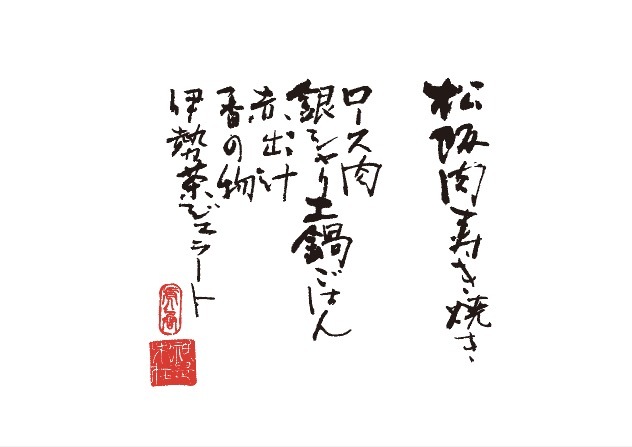 松阪肉寿き焼き
ロース肉
銀シャリ土鍋ごはん
赤出汁
香の物
伊勢茶ジェラート